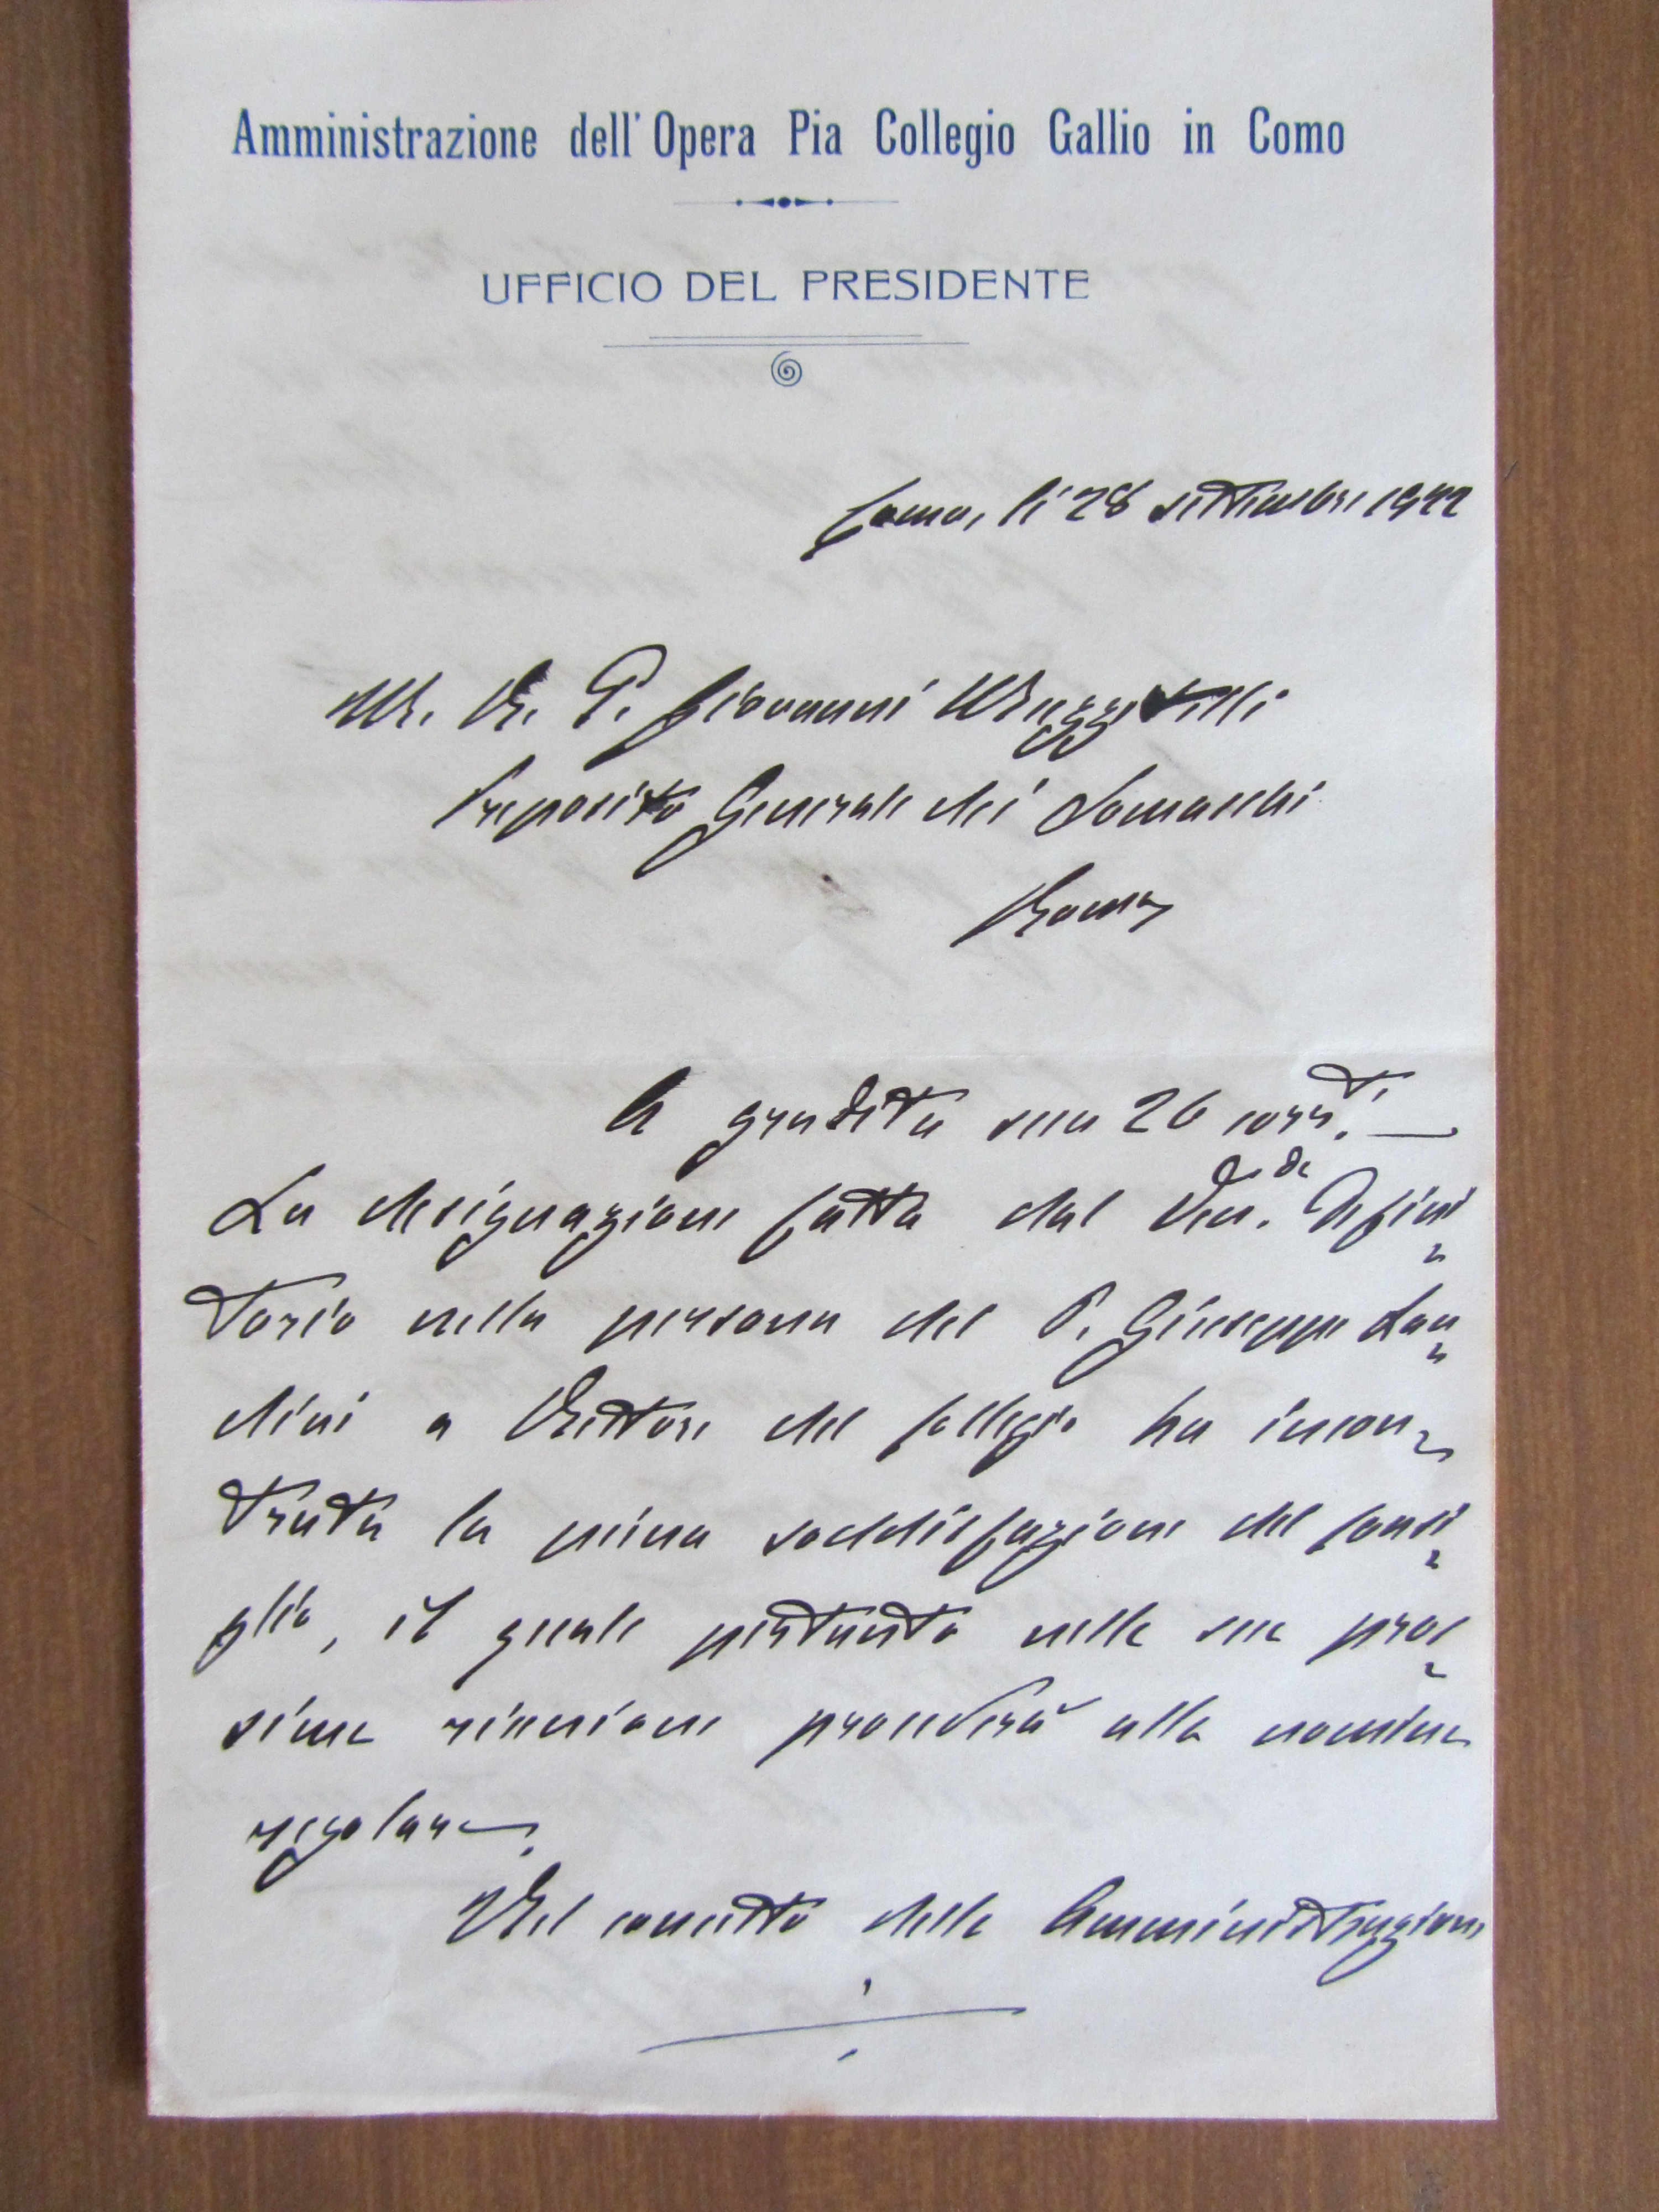 Amministrazione dell'Opera Pia Collegio Gallio in Como
UFFICIO DEL PRESIDENTE
Como, lì 28 settembre 1922
M. R. P. Giovanni Muzzitelli
Preposito Generale dei Somaschi
Roma
A gradita sua 26 corrt.
La designazione fatta dal Ven.do Defini
torio nella persona del P. Giuseppe Lan
dini a Rettore del Collegio ha incon
trata la piena soddisfazione del Consi
glio, il quale pertanto nella sua pros
sima riunione procederà alla nomina
regolare.
Nel concetto della Amministrazione